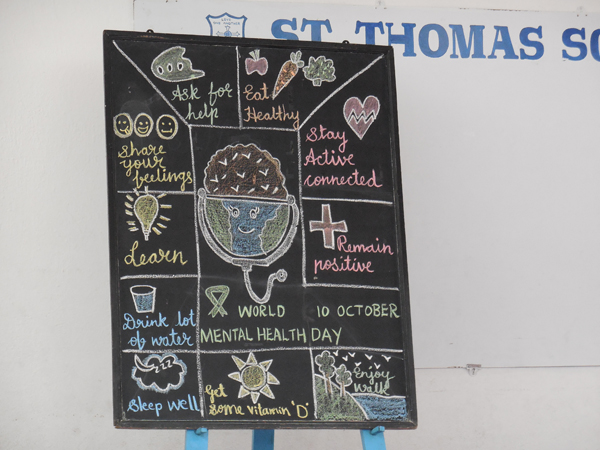 ST. THOMAS SC
Ask for
help
Eat
Healthy
Share
your
feelings
Stay
Active
connected
Learn
Remain
positive
Drink lot
of water
WORLD 10 OCTOBER
MENTAL HEALTH DAY
Sleep well
zzz
Get
some vitamin 'D'
Enjoy
Walk